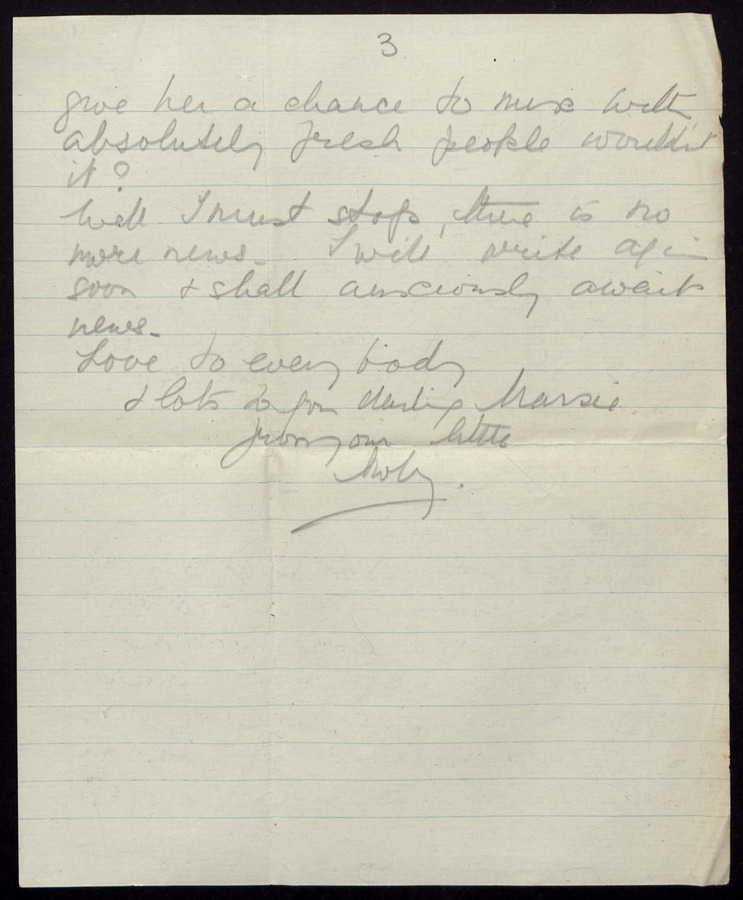 3
give her a chance to mix with
absolutely fresh people wouldn't
it?
Well I must stop, there is no
more news - I will write again
soon & shall anxiously await
news -
Love to every body
& lots to you darling
from your little